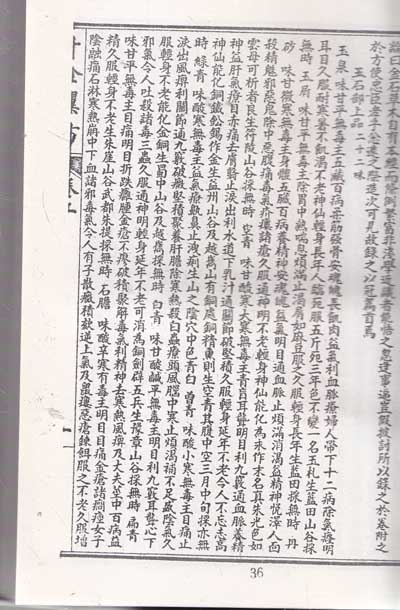 論曰金石草木自有本經而條例繁富非淺學近識者能悟之忽逢事逼豈假披討所以錄之於卷附之
於方使忠臣孝子倉遽之際造次可見故錄之以冠篇首焉
玉石部上品二十二味
玉泉 味甘平無毒主五臟百病柔筋強骨安魂魄長肌肉益氣利血脈療婦人帶下十二病除氣癃明
耳目久服耐寒暑不飢渴不老神仙輕身長年人臨死服五斤死三年色不變一名玉札生藍田山谷採
無時 玉屑 味甘平無毒主除胃中熱喘息煩滿止渴屑如麻豆服之久服輕身長年生藍田採無時 丹
砂 味甘微寒無毒主身體五臟百病養精神安魂魄益氣明目通血脈止煩滿消渴益精神悅澤人面
殺精魅邪惡鬼除中惡腹痛毒氣疥瘻諸瘡久服通神明不老輕身神仙能化為汞作末名真朱光色如
雲母可析者良生符陵山谷採無時 空青 味甘酸寒大寒無毒主青盲耳聾明目利九竅通血脈養精
神益肝氣療目赤痛去膚翳止淚出利水道下乳汁通關節破堅積久服輕身延年不老令人不忘志高
神仙能化銅鐵鉛錫作金生益州山谷及越嶲山有銅處銅精熏則生空青其腹中空三月中旬採亦無
時 綠青 味酸寒無毒主益氣療鼽鼻止洩痢生山之陰穴中色青白 曾青 味酸小寒無毒主目痛止
淚出風痹利關節通九竅破癥堅積聚養肝膽除寒熱殺白蟲療頭風腦中寒止煩渴補不足盛陰氣久
服輕身不老能化金銅生蜀中山谷及越嶲採無時 白青 味甘酸鹹平無毒主明目利九竅耳聾心下
邪氣令人吐殺諸毒三蟲久服通神明輕身延年不老可消為銅劍辟五兵生豫章山谷採無時 扁青
味甘平無毒主目痛明目折跌癰腫金瘡不瘳破積聚解毒氣利精神去寒熱風痹及丈夫莖中百病益
精久服輕身不老生朱崖山谷武都朱提採無時 石膽 味酸辛寒有毒主明目目痛金瘡諸癇痙女子
陰蝕痛石淋寒熱崩中下血諸邪毒氣令人有子散癥積欬逆上氣及鼠瘻惡瘡鍊餌服之不老久服增
36